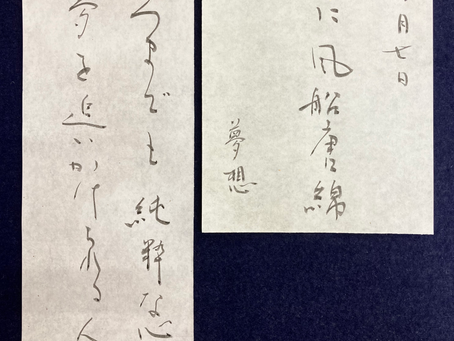 月七日
に風船唐綿
夢想
つまでも純粋な心
夢を追いかけられる人